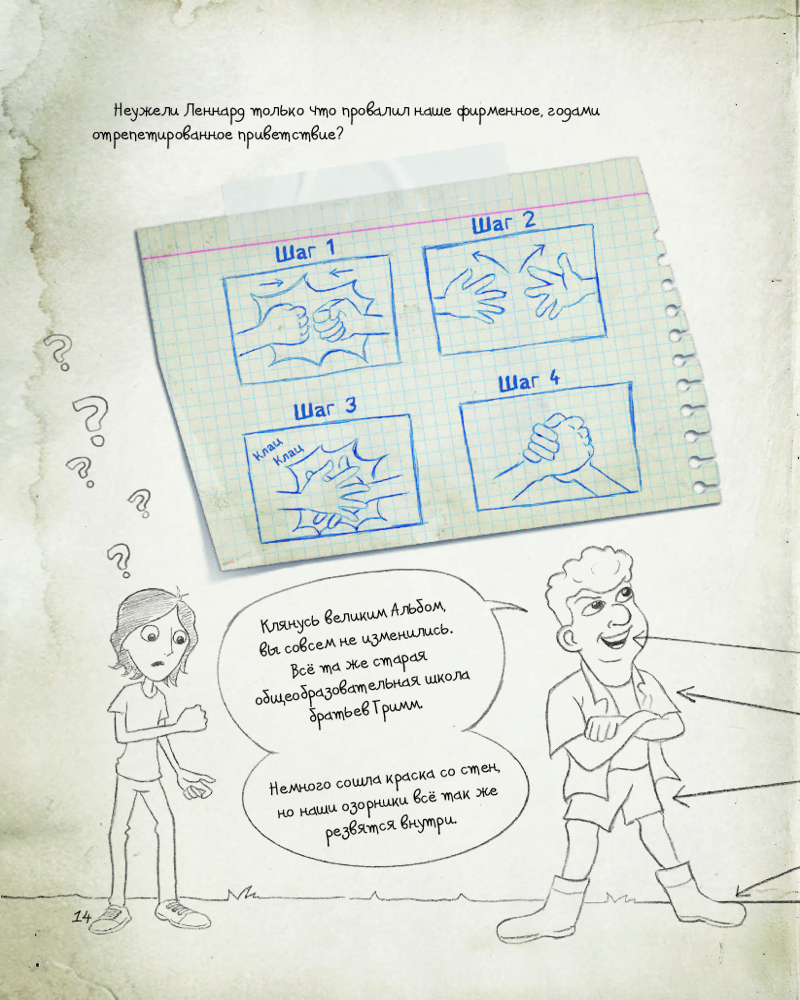 Неужели Леннард только что провалил наше фирменное, годами
отрепетированное приветствие?
Шаг 1
Шаг 2
Шаг 3
Клац
Клац
Шаг 4
?
?
?
?
?
Клянусь великим Альбом,
вы совсем не изменились.
Всё та же старая
общеобразовательная школа
братьев Гримм.
Немного сошла краска со стен,
но наши озорники всё так же
резвятся внутри.
14